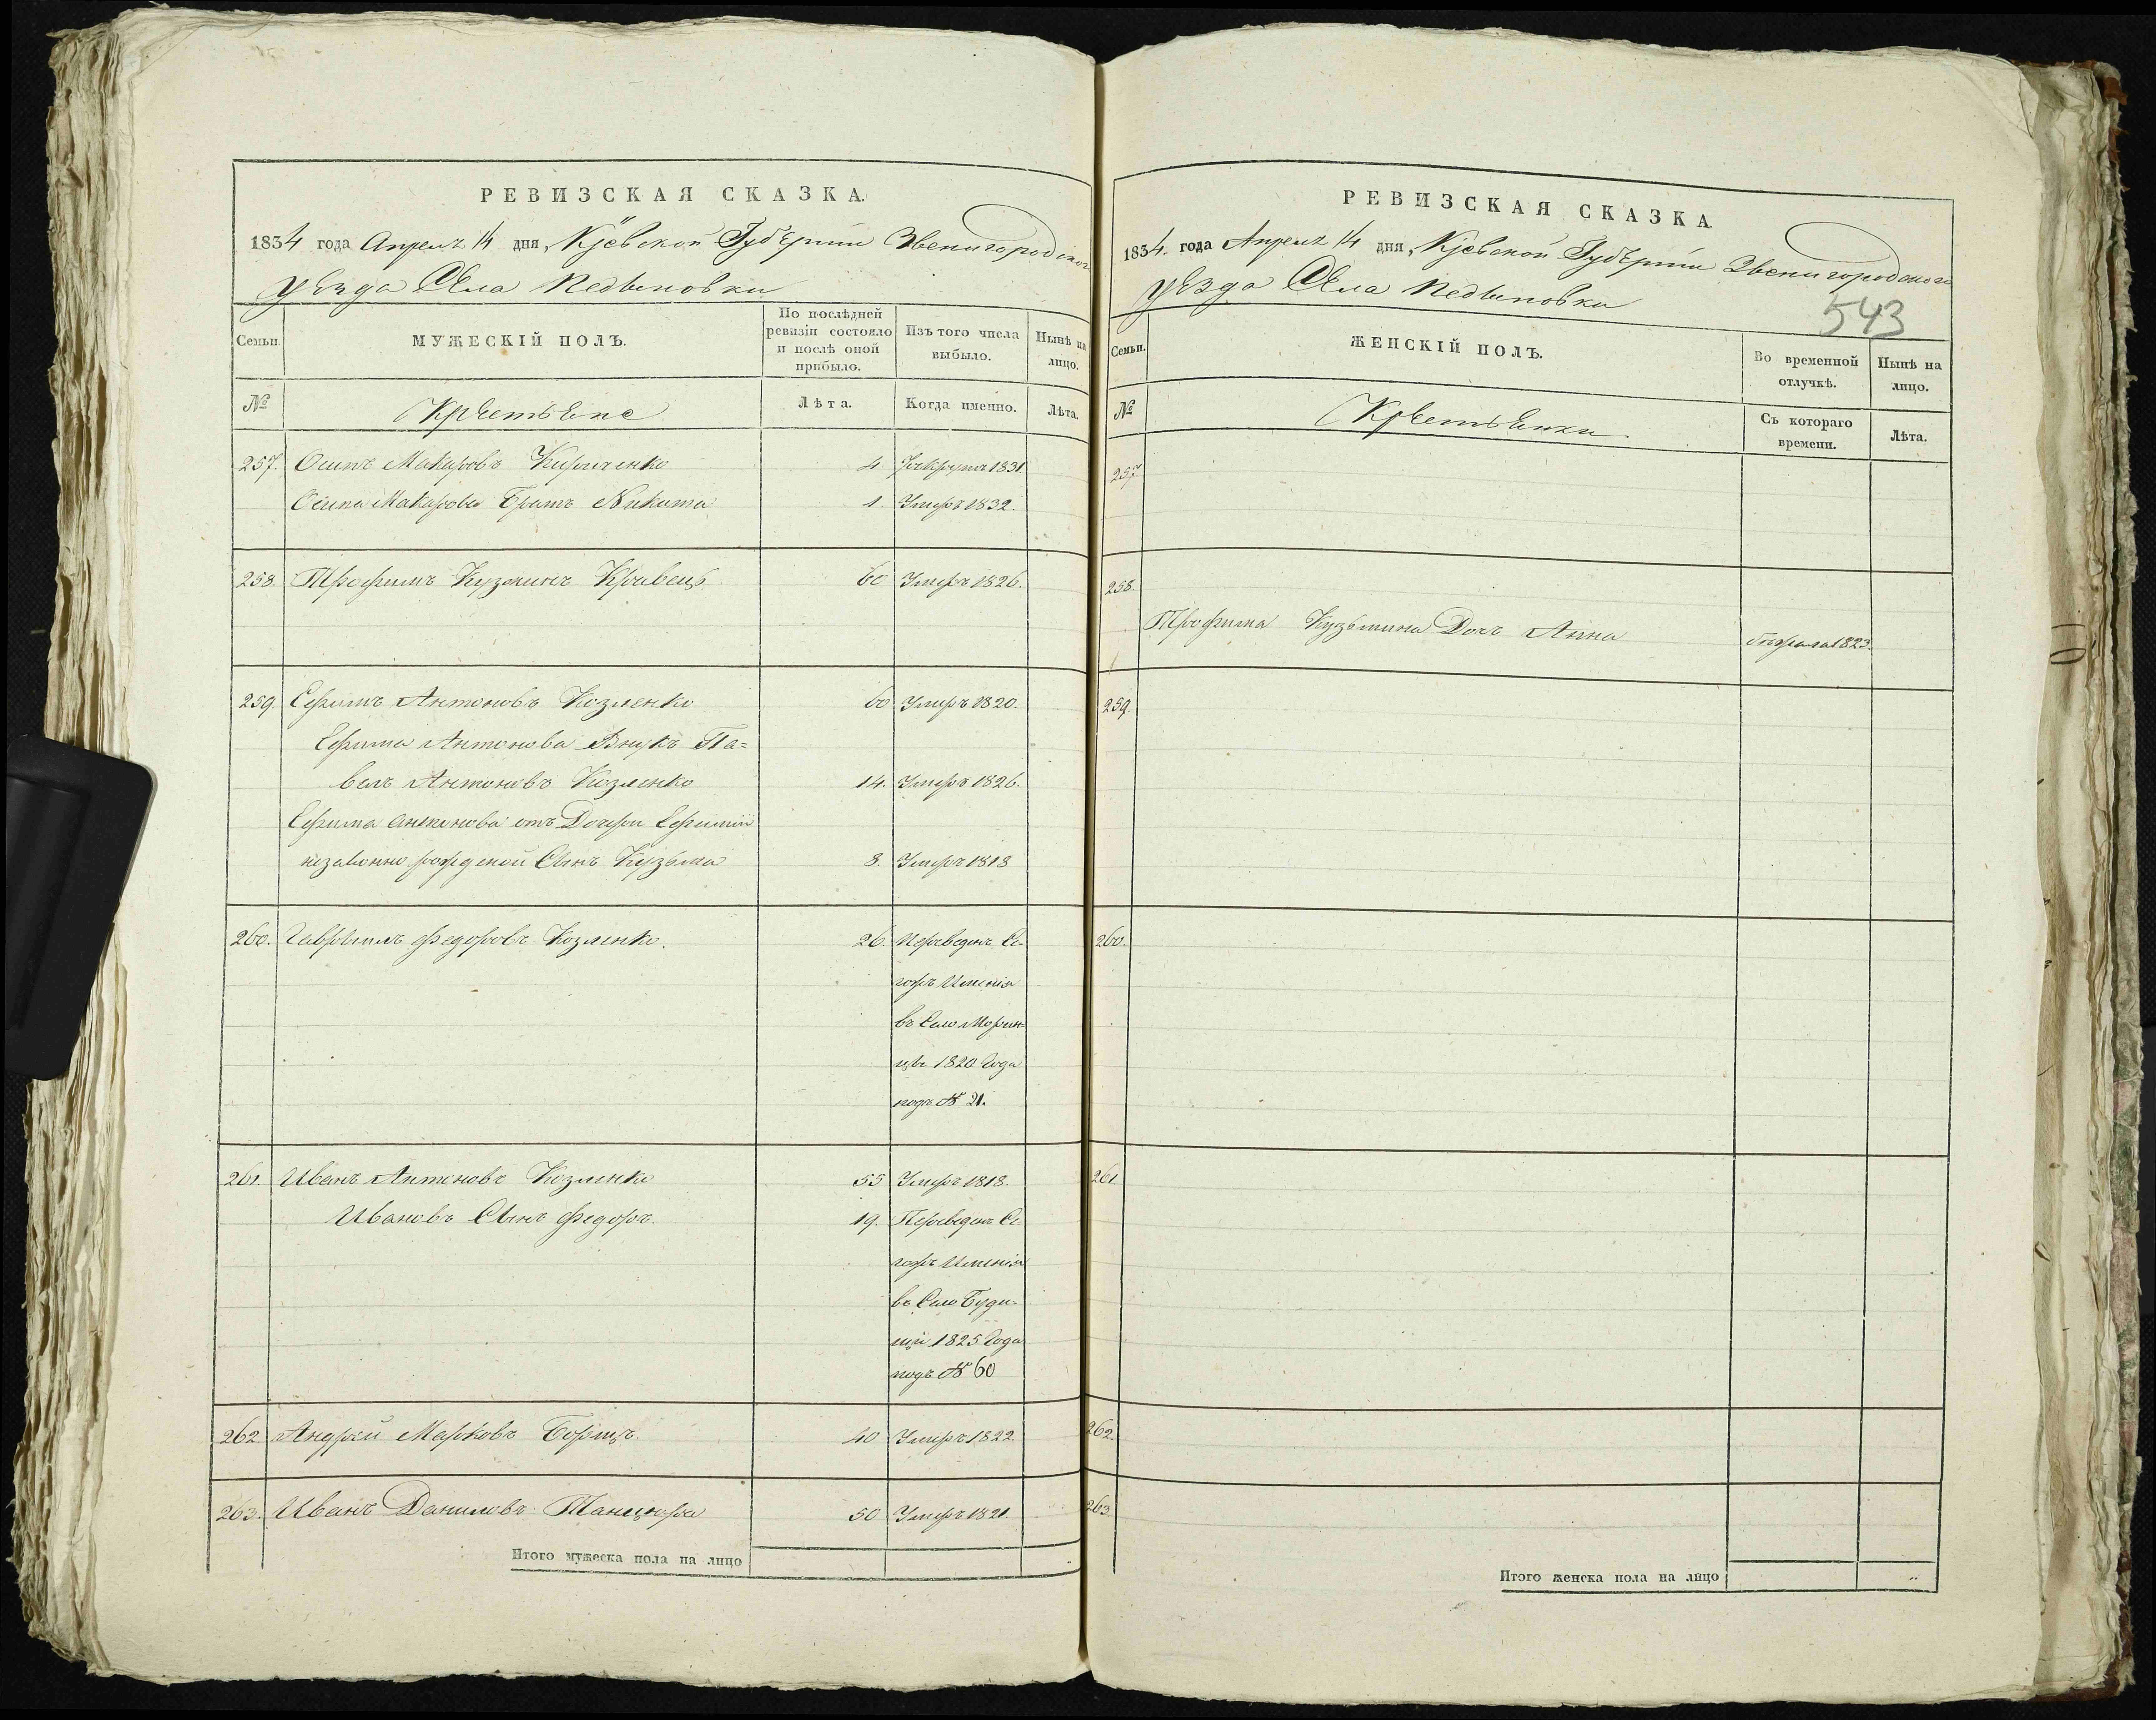 РЕВИЗСКАЯ СКАЗКА.
1834 года Апреля 14 дня, Кіевской Губерніи Звенигородского
уезда Села Педыновки
Семьи.
МУЖЕСКІЙ ПОЛЪ.
По послѣдней
ревизіи состояло
и послѣ оной
прибыло.
Изъ того числа
выбыло.
Нынѣ на
лицо.
№
Крестьяне
Лѣта.
Когда именно.
Лѣта.
257. Осипъ Макаровъ Кириченко 4 Рекрутъ 1831.
Осипа Макарова Братъ Никита 1. Умеръ 1832.
258. Трофимъ Кузминъ Кравецъ 60 Умеръ 1826.
259. Ефимъ Антоновъ Козленко 60 Умеръ 1820.
Ефима Антонова Внукъ Па=
велъ Антоновъ Козленко 14. Умеръ 1826.
Ефима Антонова отъ Дочери Ефиміи
незаконно рожденой Сынъ Кузьма 8. Умеръ 1818
260. Гаврыилъ Федоровъ Козленко. 26 Переведенъ Се-
гожъ Именія
въ Село Морин-
цы 1820 Года
подъ № 21.
261. Иванъ Антоновъ Козленко 55 Умеръ 1818.
Ивановъ Сынъ Федоръ. 19. Переведенъ Се-
гожъ Именія
въ Село Буди-
щи 1825 Года
подъ № 60
262 Андрей Марковъ Борщъ. 40 Умеръ 1822.
263. Иванъ Даниловъ Танцюра 50 Умеръ 1821.
Итого мужеска пола на лицо
РЕВИЗСКАЯ СКАЗКА
1834. года Апреля 14 дня, Кіевской Губерніи Звенигородского
уезда Села Педыновки
543
Семьи.
ЖЕНСКІЙ ПОЛЪ.
Во временной
отлучкѣ.
Нынѣ на
лицо.
№
Крестьянки.
Съ котораго
времени.
Лѣта.
257
258.
Трофима Кузьмина Дочь Анна бѣжала 1823.
259.
260.
261
262.
263.
Итого женска пола на лицо